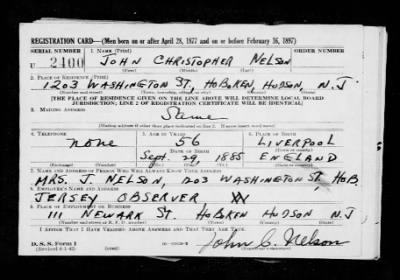 REGISTRATION CARD—(Men born on or after April 28, 1877 and on or before February 16, 1897)
SERIAL NUMBER 1. NAME (Print) ORDER NUMBER
U 2400 JOHN CHRISTOPHER NELSON
(First) (Middle) (Last)
2. PLACE OF RESIDENCE (Print)
1203 WASHINGTON ST, HOBOKEN HUDSON, N.J
[THE PLACE OF RESIDENCE GIVEN ON THE LINE ABOVE WILL DETERMINE LOCAL BOARD
JURISDICTION; LINE 2 OF REGISTRATION CERTIFICATE WILL BE IDENTICAL]
3. MAILING ADDRESS
Same
[Mailing address if other than place indicated on line 2. If same insert word same]
4. TELEPHONE 5. AGE IN YEARS 6. PLACE OF BIRTH
none 56 LIVERPOOL
DATE OF BIRTH
Sept. 29, 1885 ENGLAND
7. NAME AND ADDRESS OF PERSON WHO WILL ALWAYS KNOW YOUR ADDRESS
MRS. J. NELSON, 1203 WASHINGTON ST, HOB.
8. EMPLOYER'S NAME AND ADDRESS
JERSEY OBSERVER
9. PLACE OF EMPLOYMENT OR BUSINESS
111 NEWARK ST. HOBOKEN HUDSON N.J
I AFFIRM THAT I HAVE VERIFIED ABOVE ANSWERS AND THAT THEY ARE TRUE.
D. S. S. Form 1
(Revised 4-1-42)
John C. Nelson